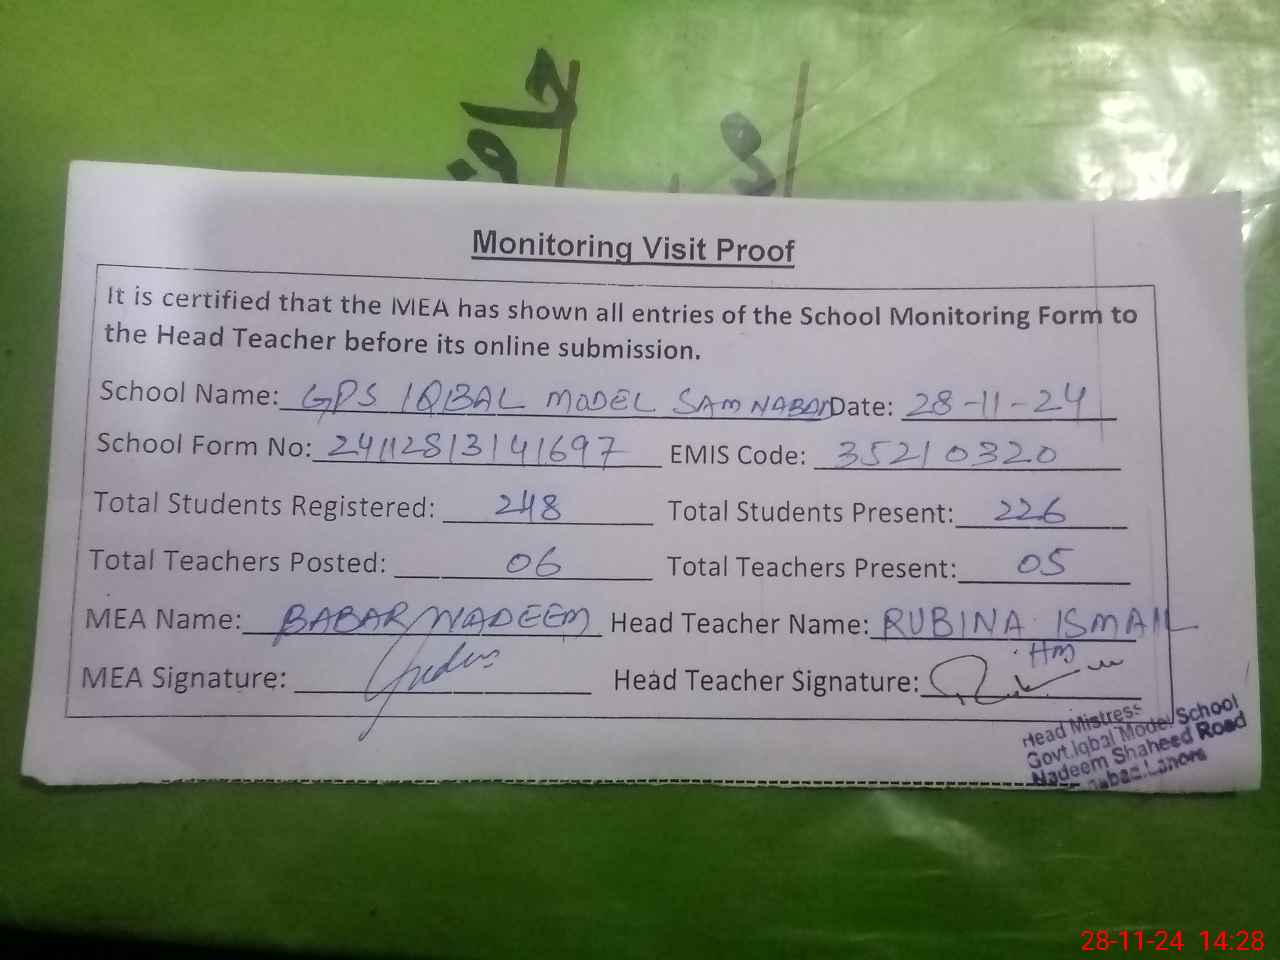 حاف
Monitoring Visit Proof
It is certified that the MEA has shown all entries of the School Monitoring Form to
the Head Teacher before its online submission.
School Name: GPS IQBAL MODEL SAMNABAD Date: 28-11-24
School Form No: 24112813141697 EMIS Code: 35210320
Total Students Registered: 248 Total Students Present: 226
Total Teachers Posted: 06 Total Teachers Present: 05
MEA Name: BABAR NADEEM Head Teacher Name: RUBINA ISMAIL
MEA Signature: Head Teacher Signature: HM
Head Mistress
Govt.Iqbal Model School
Nadeem Shaheed Road
Lahore
28-11-24 14:28